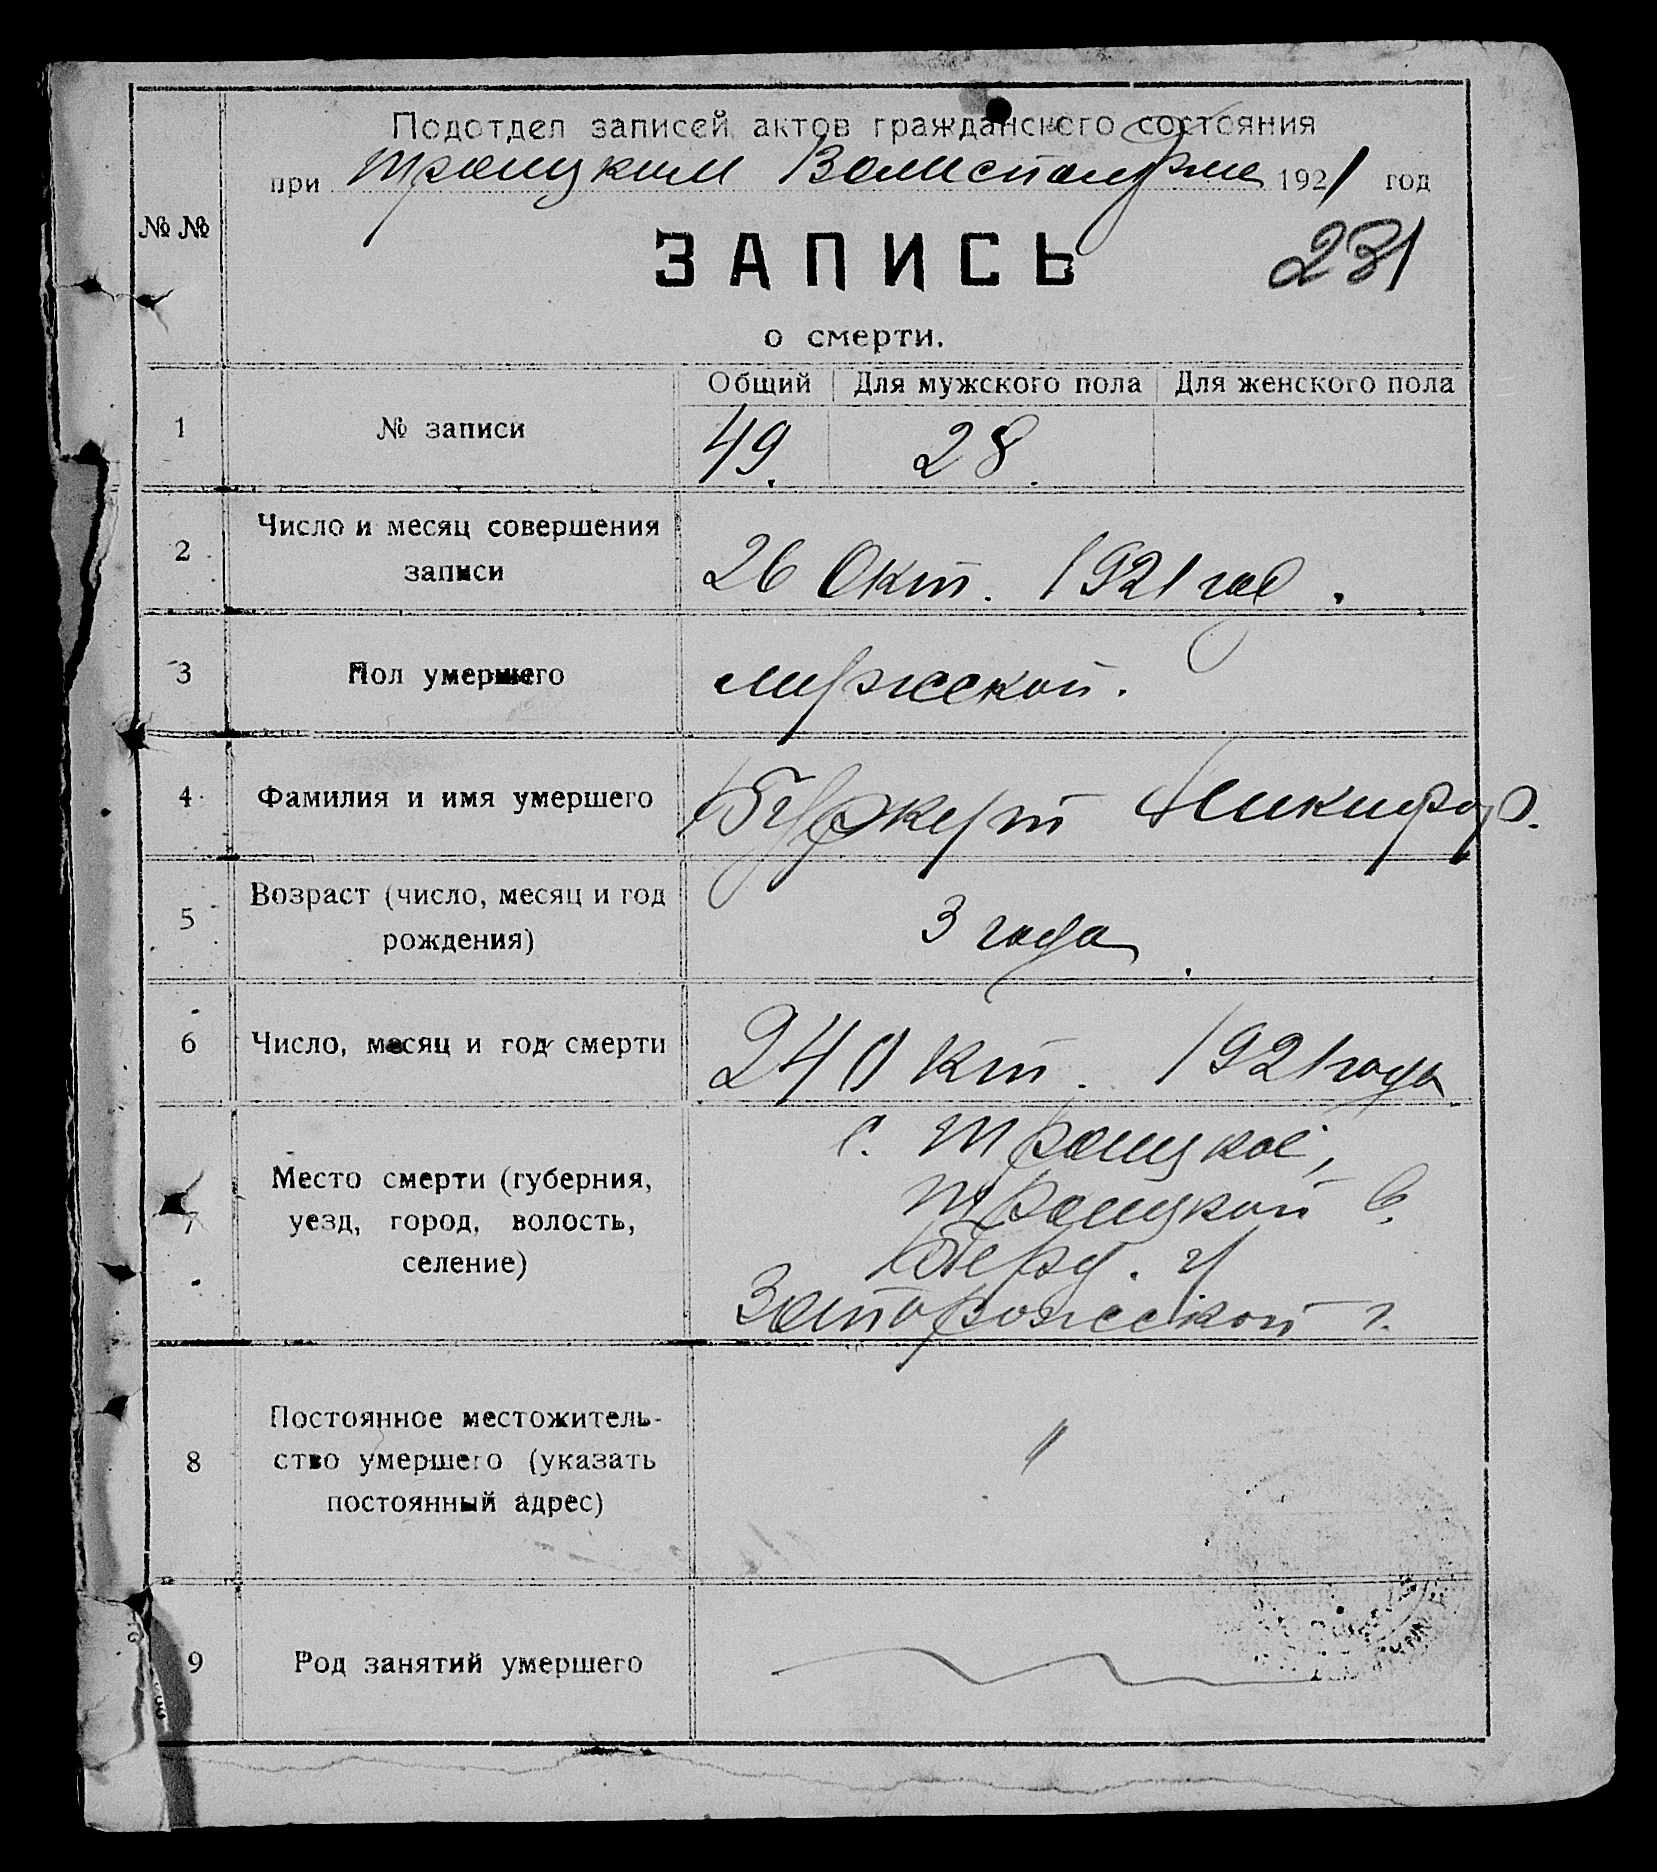 Подотдел записей актов гражданского состояния
при Троицким 1921 год
№ №
ЗАПИСЬ
231
о смерти.
Общий Для мужского пола Для женского пола
1 № записи 49. 28.
2 Число и месяц совершения записи 26 Окт. 1921 год.
3 Пол умершего мужской.
4 Фамилия и имя умершего Никифор.
5 Возраст (число, месяц и год рождения) 3 года.
6 Число, месяц и год смерти 24 Окт. 1921 года
7 Место смерти (губерния, уезд, город, волость, селение)
с. Троицкое,
Троицкой в.
Берд. у
Запорожской г.
8 Постоянное местожитель-
ство умершего (указать
постоянный адрес)
"
9 Род занятий умершего